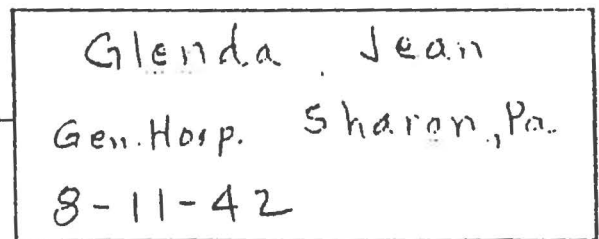 Glenda Jean
Gen. Hosp. Sharon, Pa.
8-11-42